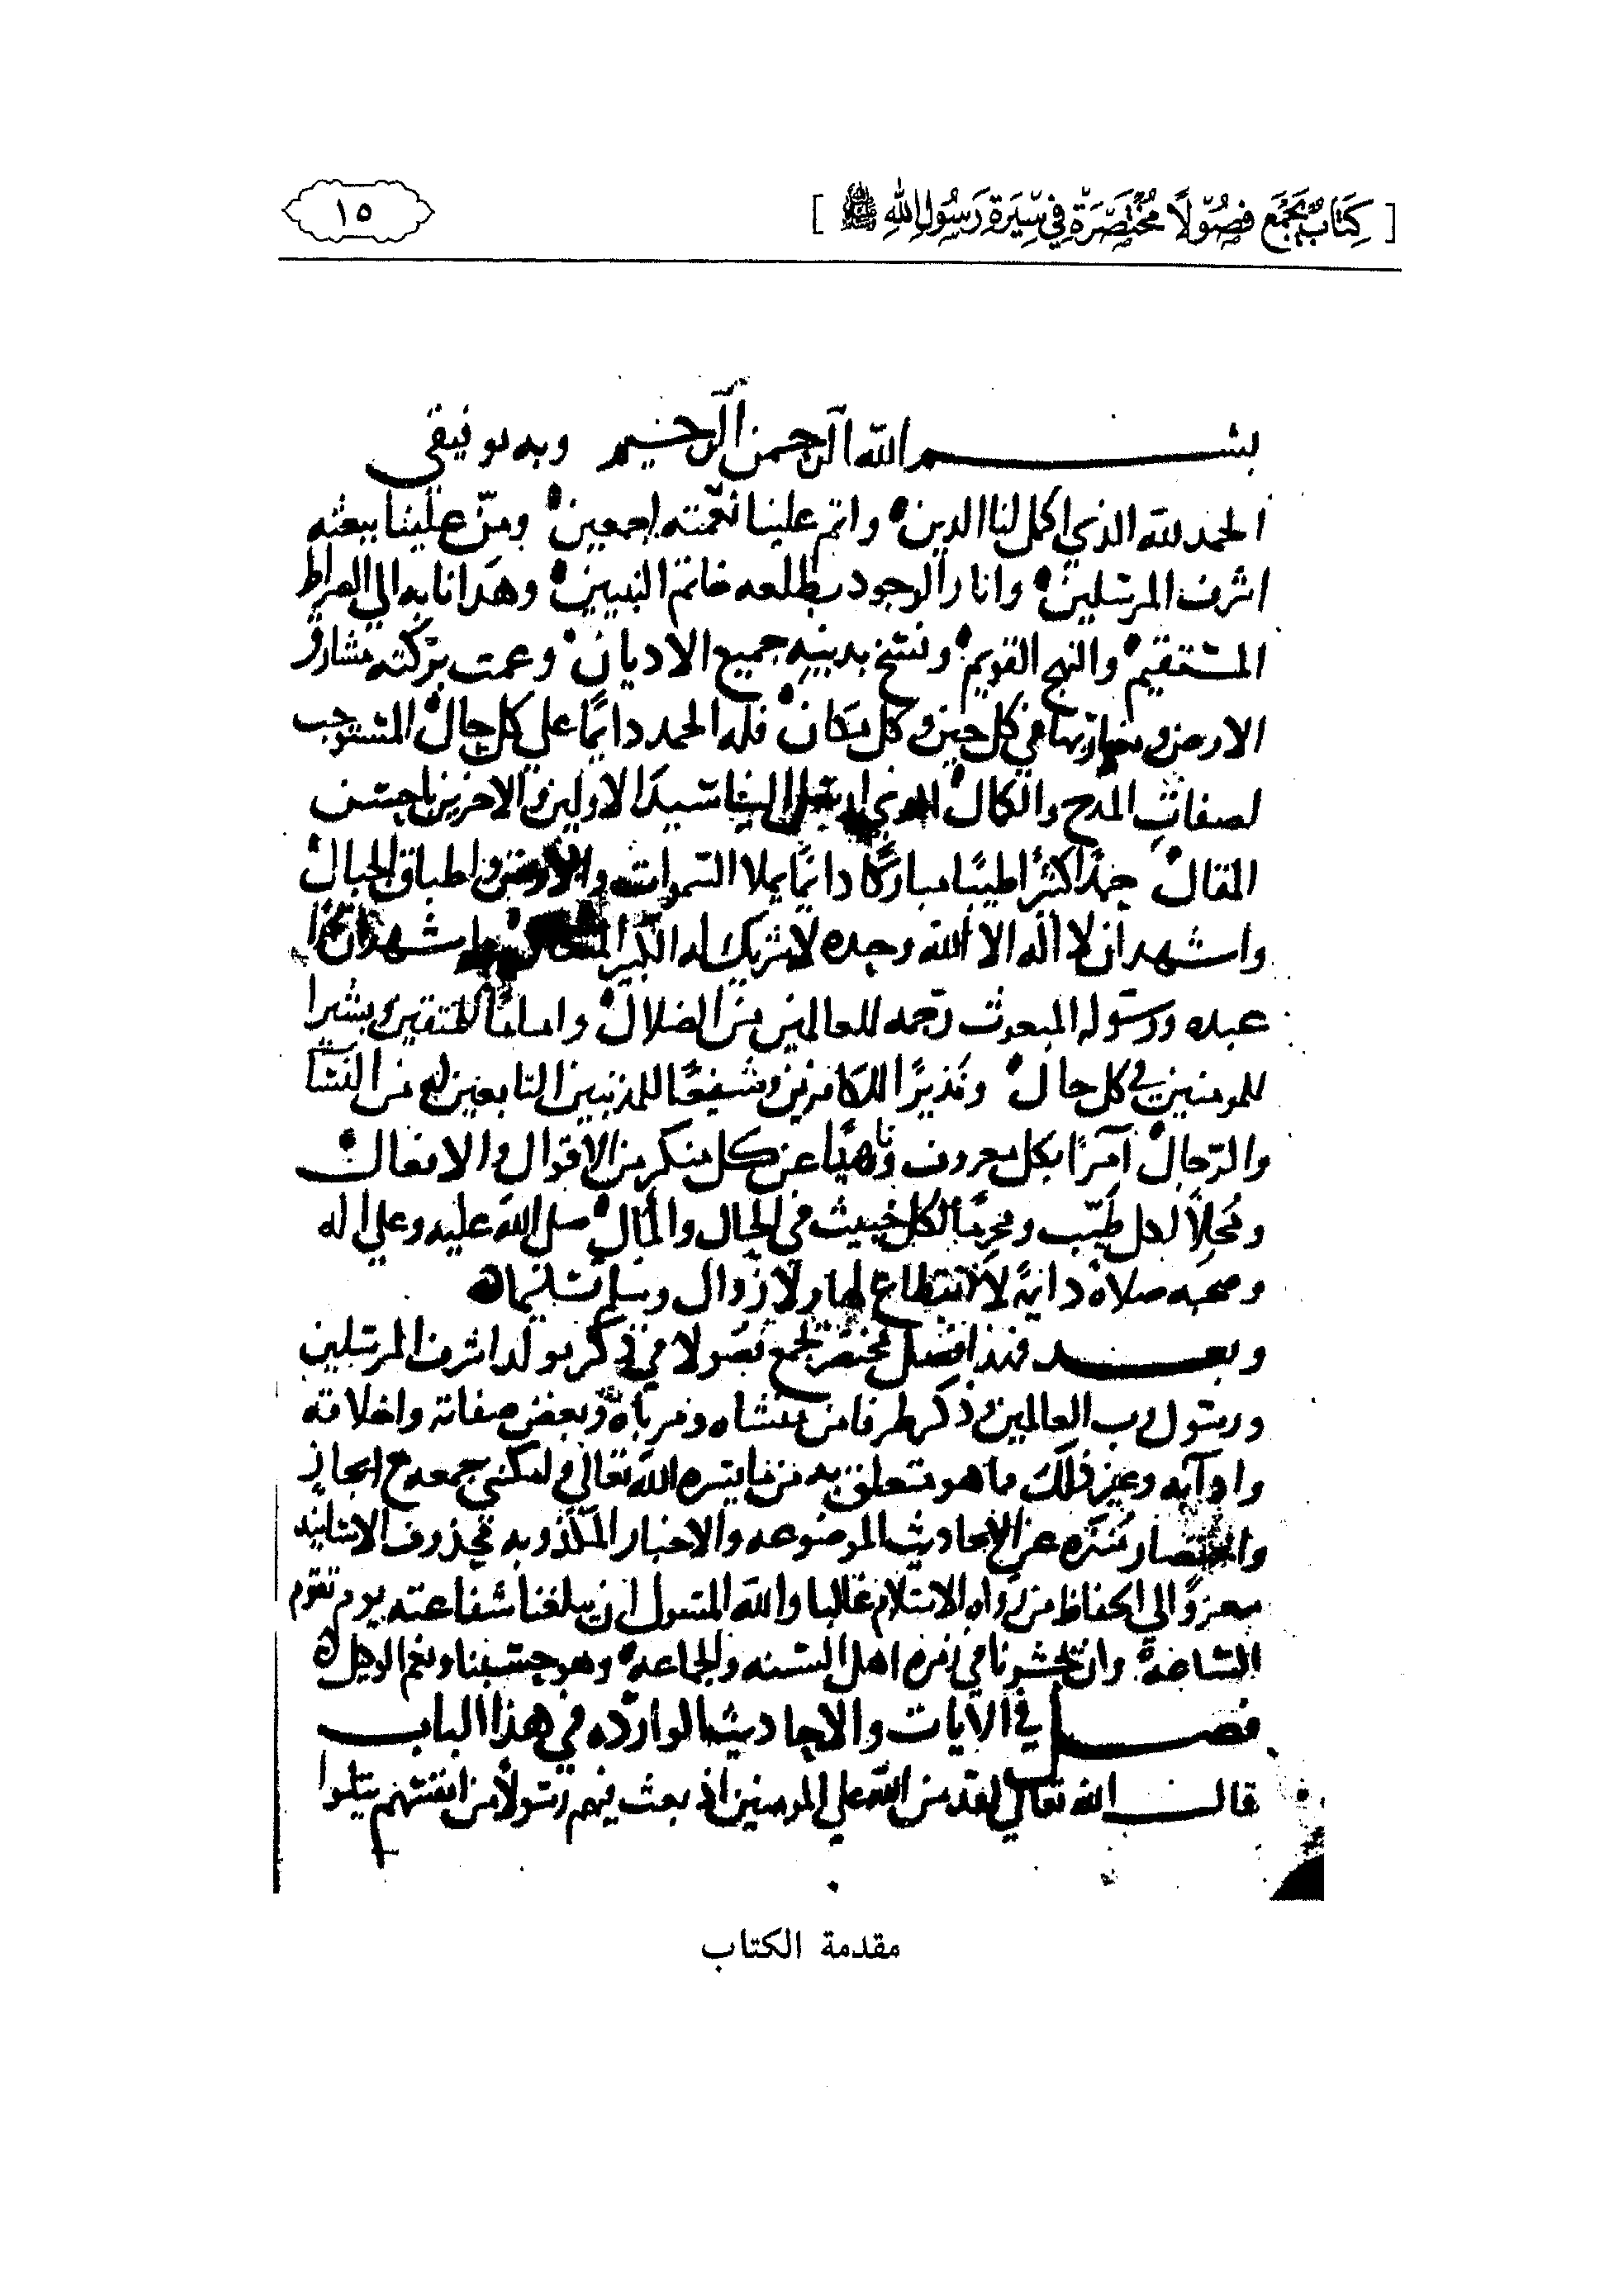 [ كِتَابٌ يَجْمَع فُصُولًا مُخْتَصَرَةً فِي سِيرَةِ رَسُولِ اللهِ ﷺ ]
١٥
بسم الله الرحمن الرحيم وبه توفيقي
الحمد لله الذي اكمل لنا الدين واتم علينا نعمته اجمعين ومنّ علينا ببعثه
اشرف المرسلين وانار الوجود بطلعه خاتم النبيين وهدانا به الي الصراط
المستقيم والنهج القويم ونسخ بدينه جميع الاديان وعمت بركته مشارق
الارض ومغاربها في كل حين وكل مكان فله الحمد دائمًا علي كل حال المستوجب
لصفات المدح والكمال سيد الاولين والاخرين باحسن
المقال حمدًا كثيرًا طيبًا مباركًا دائمًا يملا السموات والأرض واطباق الجبال
واشهد ان لا اله الا الله وحده لا شريك له الكبير واشهد ان
عبده ورسوله المبعوث رحمه للعالمين من الضلال واماما للمتقين وبشيرا
للمومنين في كل حال ونذيرًا للكافرين وشفيعًا للمذنبين التابعين له من النسا
والرجال آمرًا بكل معروف وناهيًا عن كل منكر من الاقوال والافعال
ومُحِلاً لكل طيّب ومحرمًا لكل خبيث في الحال والمآل صلى الله عليه وعلي اله
وصحبه صلاة دايمة لا انقطاع لها ولا زوال وسلم تسليما
وبعد فهذا فصل مختصر يجمع فصولا في ذكر مولد اشرف المرسلين
ورسول رب العالمين وذكر طرفا من منشاه ومرباه وبعض صفاته واخلاقه
وادآبه وغير ذلك مما هو متعلق به من ما يسره الله تعالي وامكنني جمعه مع ايجاز
واختصار مُنَزه عن الاحاديث الموضوعه والاخبار المكذوبه محذوف الاسانيد
معزوًا الي الحفاظ من رواه الاسلام غالبا والله المسول ان يبلغنا شفاعته يوم تقوم
الساعة وان يحشرنا في زمره اهل السنه والجماعه وهو حسبنا ونعم الوكيل
فصل في الآيات والاحاديث الوارده في هذا الباب
قال الله تعالي لقد من الله علي المومنين اذ بعث فيهم رسولًا من انفسهم يتلوا
مقدمة الكتاب